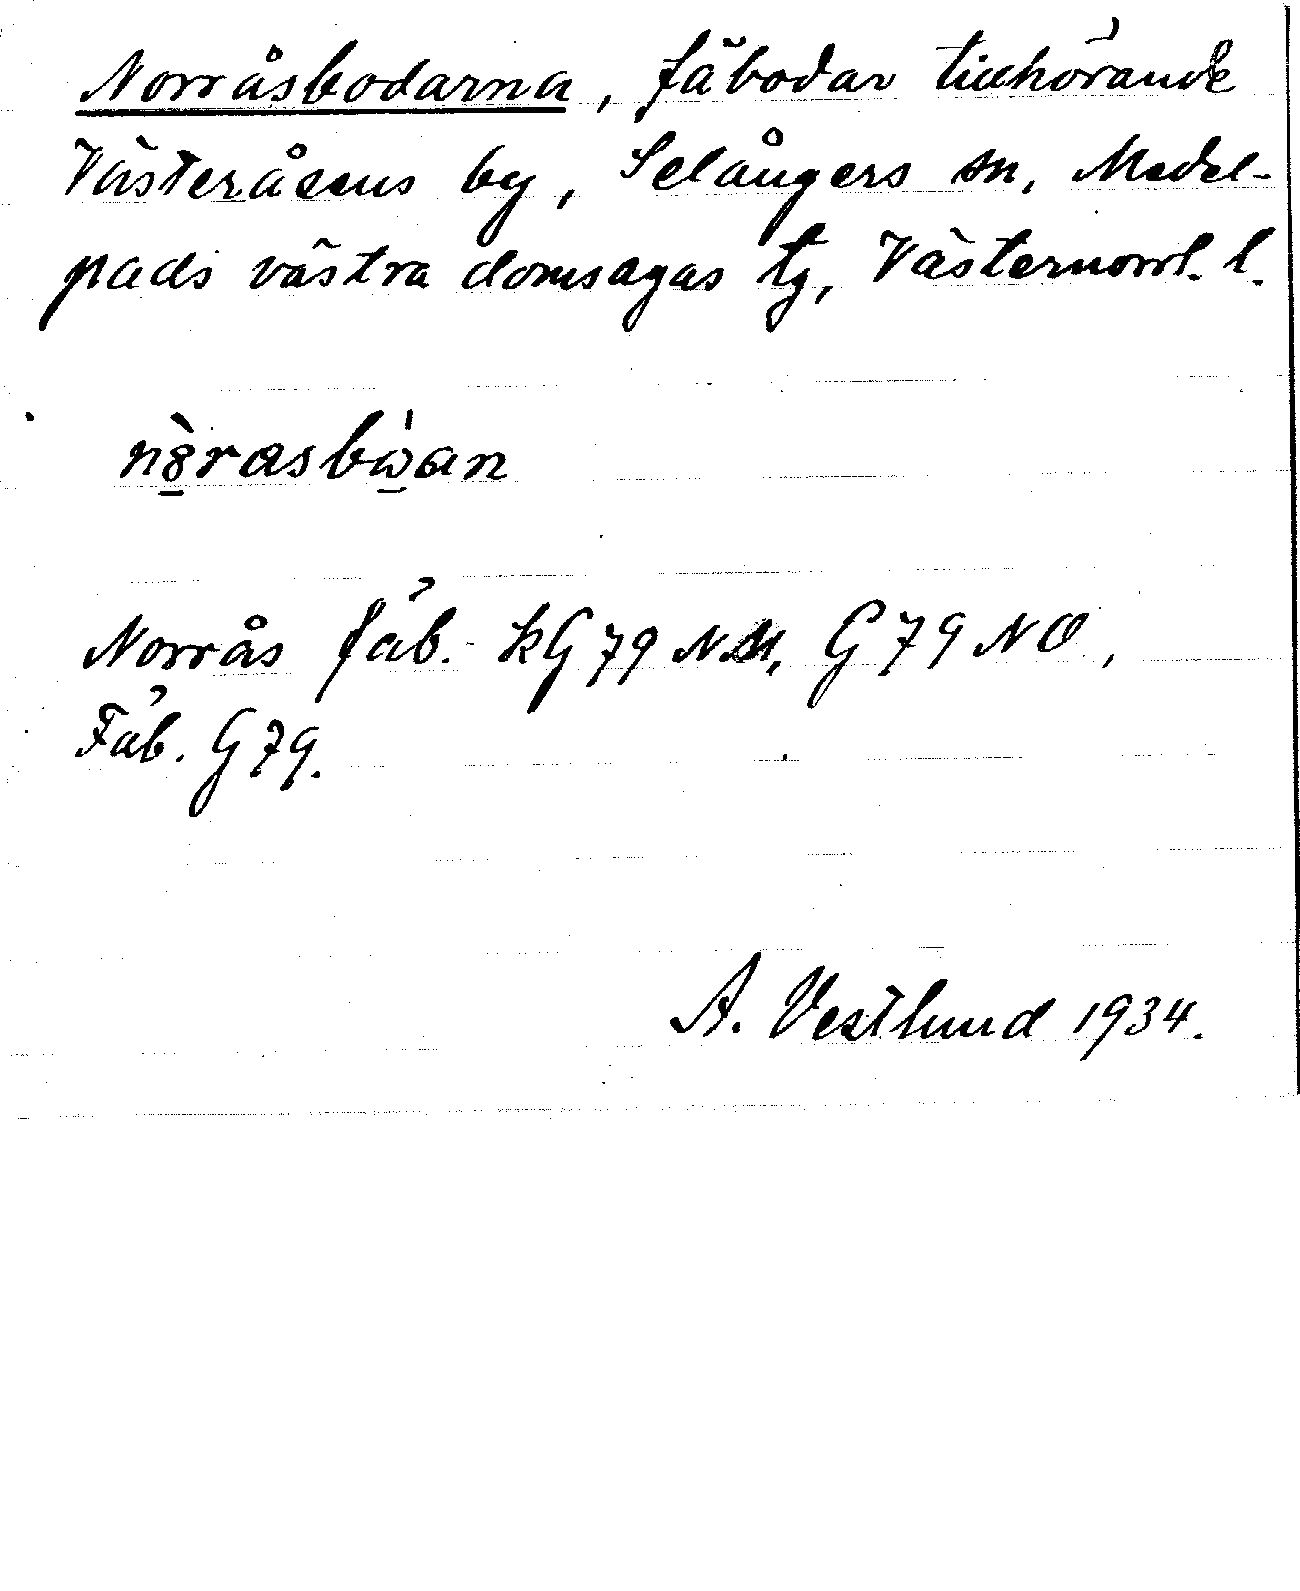 Norråsbodarna, fäbodar tillhörande
Västeråsens by, Selångers sn, Medel-
pads västra domsagas tg, Västernorrl. l.
n8̬̀rasbὼ̬an
Norrås fäb. kG 79 NM, G 79 NO,
Fäb. G 79.
A. Vestlund 1934.